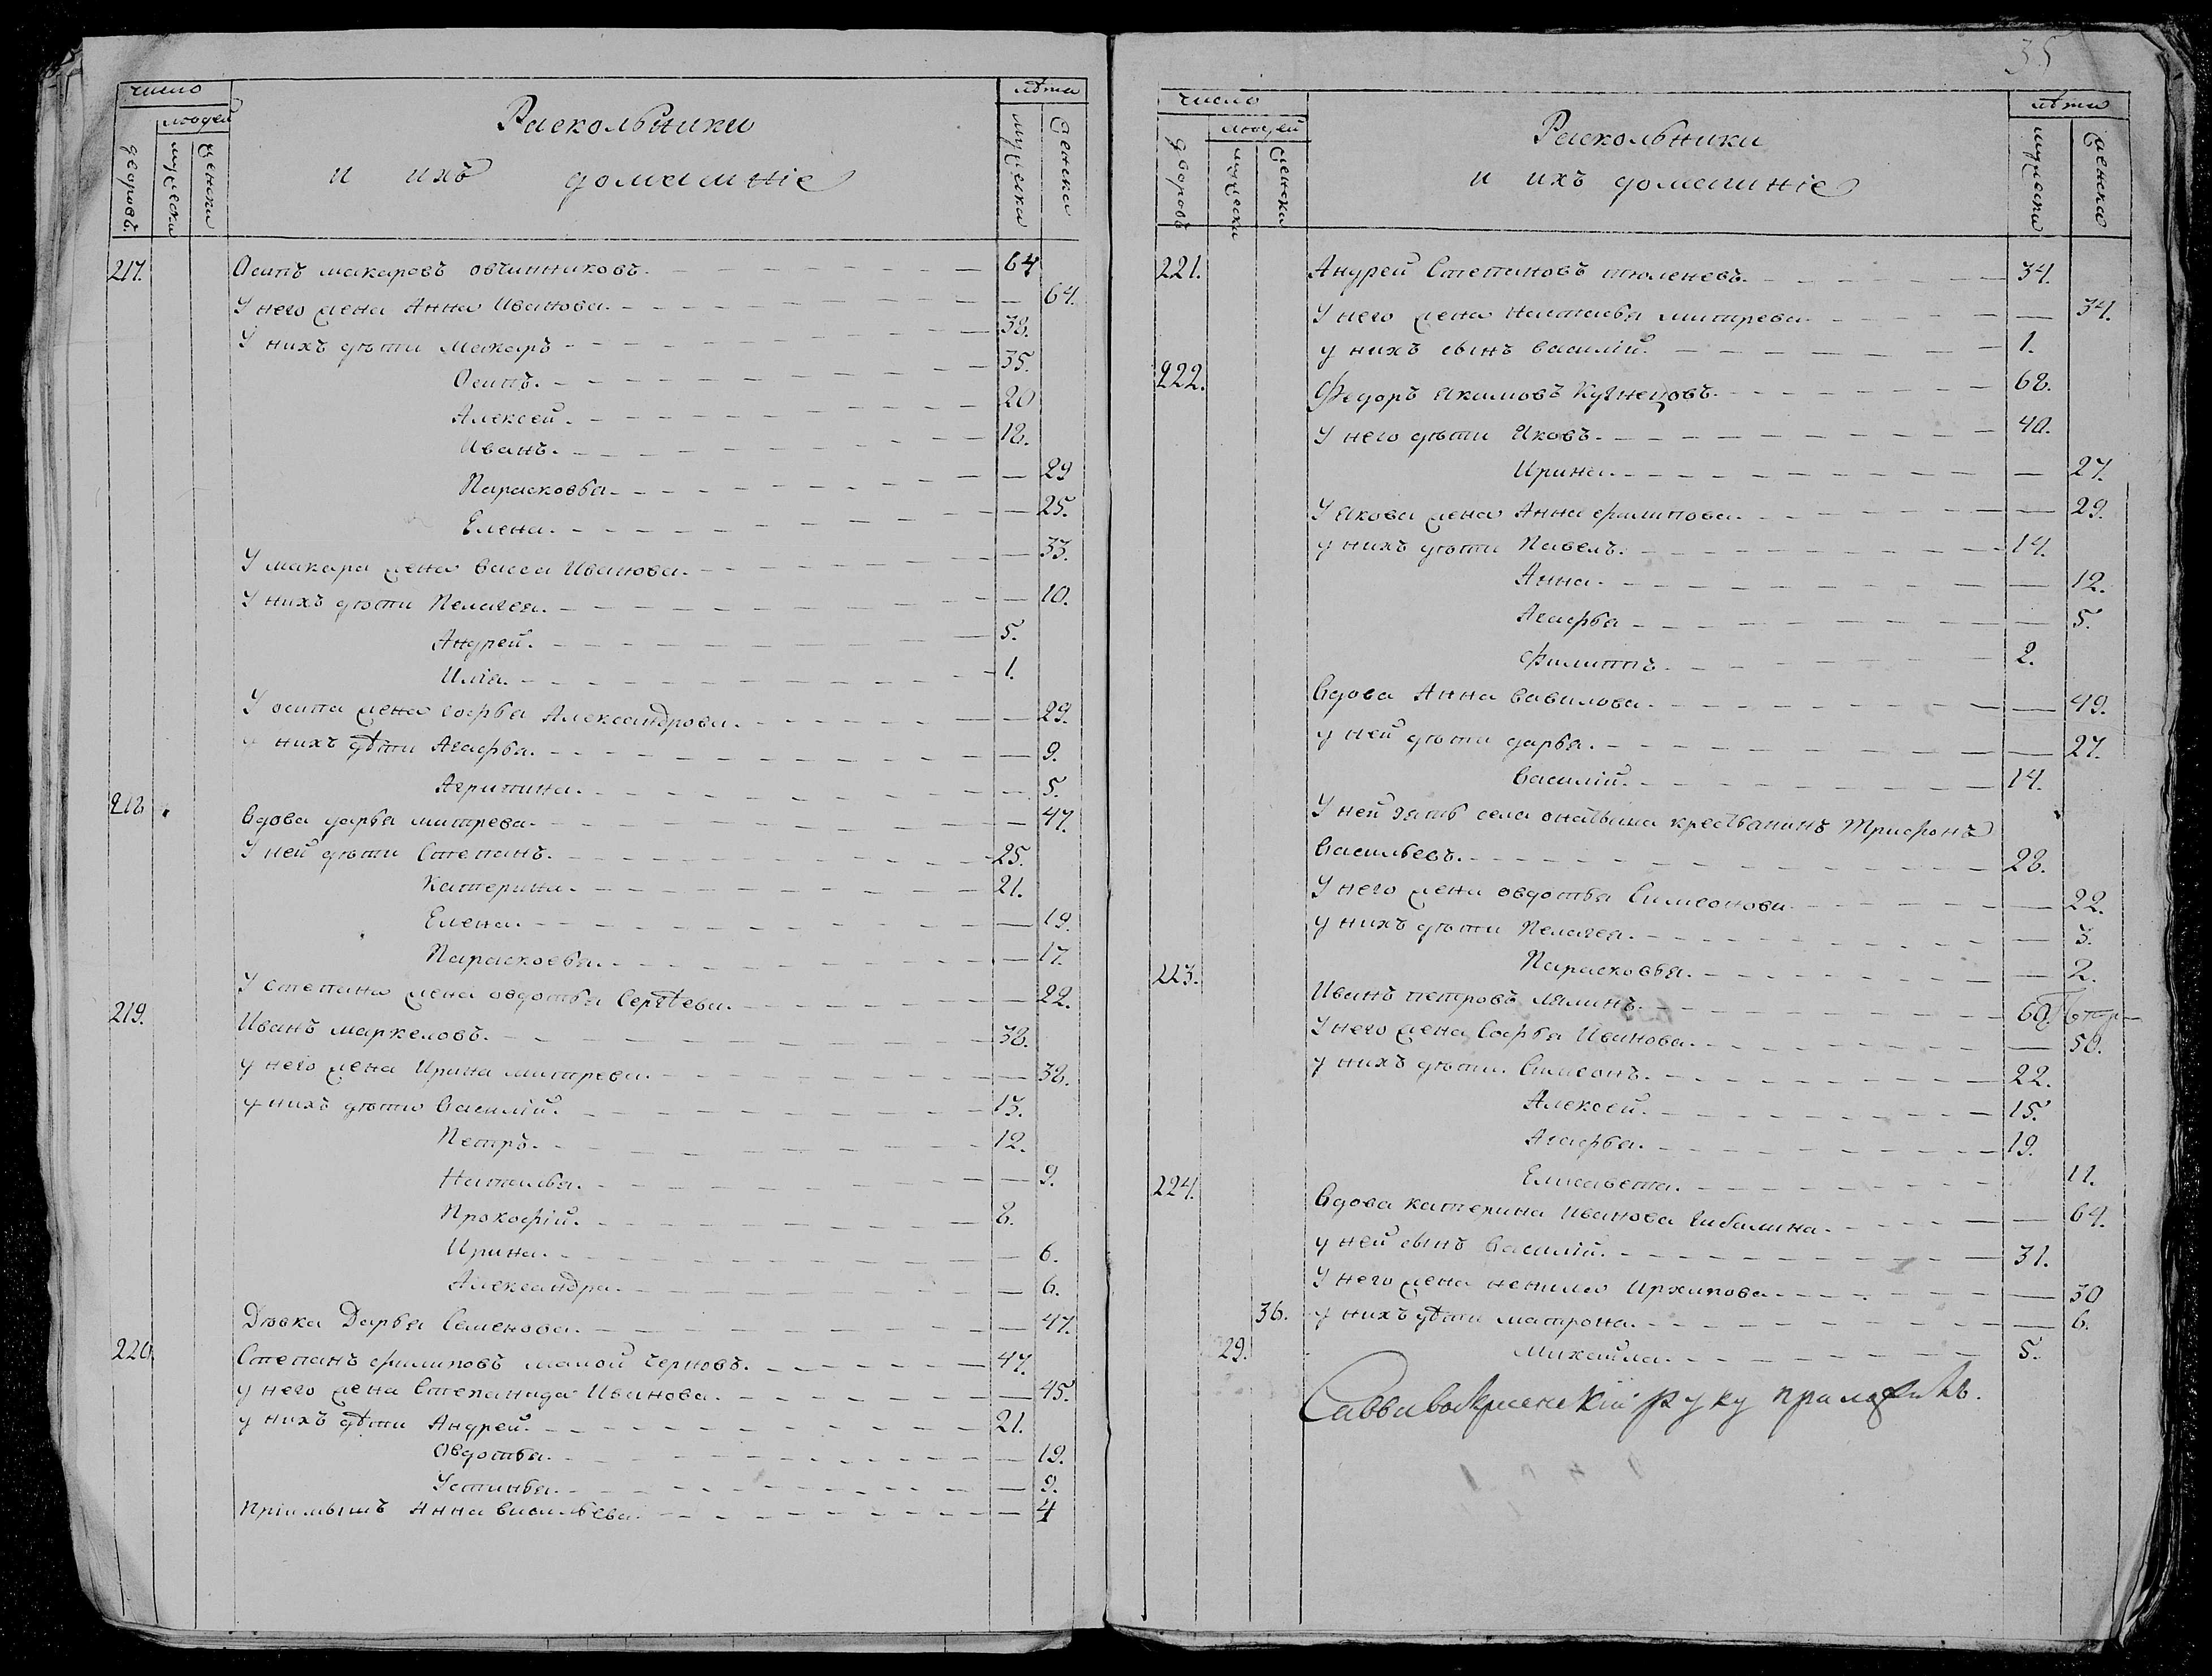 число
лѣта
людей
дворовъ
мужеска
женска
Раскольники
и ихъ домашніе
мужеска
женска
217. Осипъ макаровъ овчинниковъ. 64
У него жена Анна Иванова. 64.
У нихъ дѣти Макаръ 38.
Осипъ. 35.
Алексей. 20
Иванъ. 18.
Парасковья 29
Елена. 25.
У макара жена васса Иванова. 33.
У нихъ дѣти Пелагея. 10.
Андрей. 5.
Илiя. 1.
У осипа жена софья Александрова. 29.
у нихъ дѣти Агафья. 9.
Агрипина. 5.
218 вдова дарья митрева. 47.
У ней дѣти Степанъ. 25.
Катерина. 21.
Елена. 19.
Парасковья. 17.
У степана жена овдотья Сергѣева. 22.
219. Иванъ маркеловъ. 38.
у него жена Ирина митрева. 38.
у нихъ дѣти Василій. 13.
Петръ. 12.
Наталья. 9.
Прокофій. 8.
Ирина. 6.
Александра. 6.
Дѣвка Дарья Семенова. 47.
220. Степанъ филиповъ малой черновъ. 47.
у него жена Степанида Иванова. 45.
у нихъ дѣти Андрей. 21.
Овдотья. 19.
Устинья. 9.
Пріимышъ Анна васильева. 4
35
число
лѣта
людей
дворовъ
мужеска
женска
Раскольники
и ихъ домашніе
мужеска
женска
221. Андрей Степановъ тюленевъ. 34.
У него жена наталья митрева. 34.
у нихъ сынъ василій. 1.
222. Федоръ якимовъ Кузнецовъ. 68.
У него дѣти Яковъ. 40.
Ирина. 27.
У якова жена Анна филипова. 29.
у нихъ дѣти Павелъ. 14.
Анна. 12.
Агафья 5.
филиппъ. 2.
Вдова Анна вавилова. 49.
у ней дѣти дарья. 27.
Василій. 14.
У ней зять села крестьянинъ Трифонъ
Васильевъ. 28.
У него жена овдотья Симеонова 22.
у нихъ дѣти Пелагея. 3.
Парасковья. 2.
223. Иванъ петровъ лялинъ. 60.
У него жена Софья Иванова. 50.
у нихъ дѣти. Симеонъ. 22.
Алексей. 15.
Агафья. 19.
Елисавета. 11.
224. Вдова катерина иванова чибалина. 64.
у ней сынъ Василій. 31.
У него жена ненила Архипова 30
36. у нихъ дѣти матрона. 6.
29. михайла. 5.
Савва воскресенскій руку приложилъ.